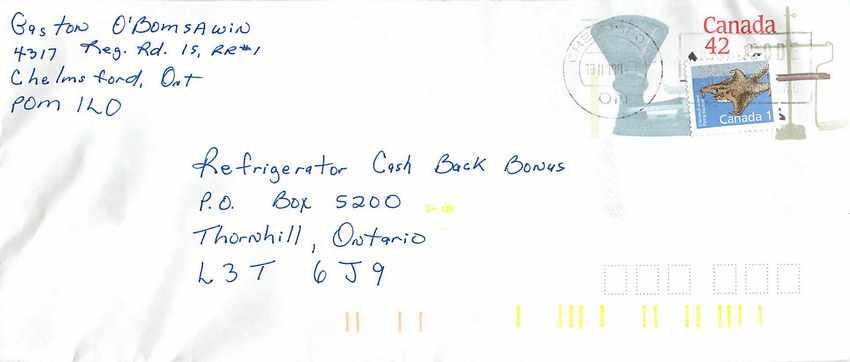 Gaston O'Bomsawin
4317 Reg. Rd. 15, RR#1
Chelmsford, Ont
P0M 1L0
Canada
42
Canada 1
Refrigerator Cash Back Bonus
P.O. Box 5200
Thornhill, Ontario
L3T 6J9